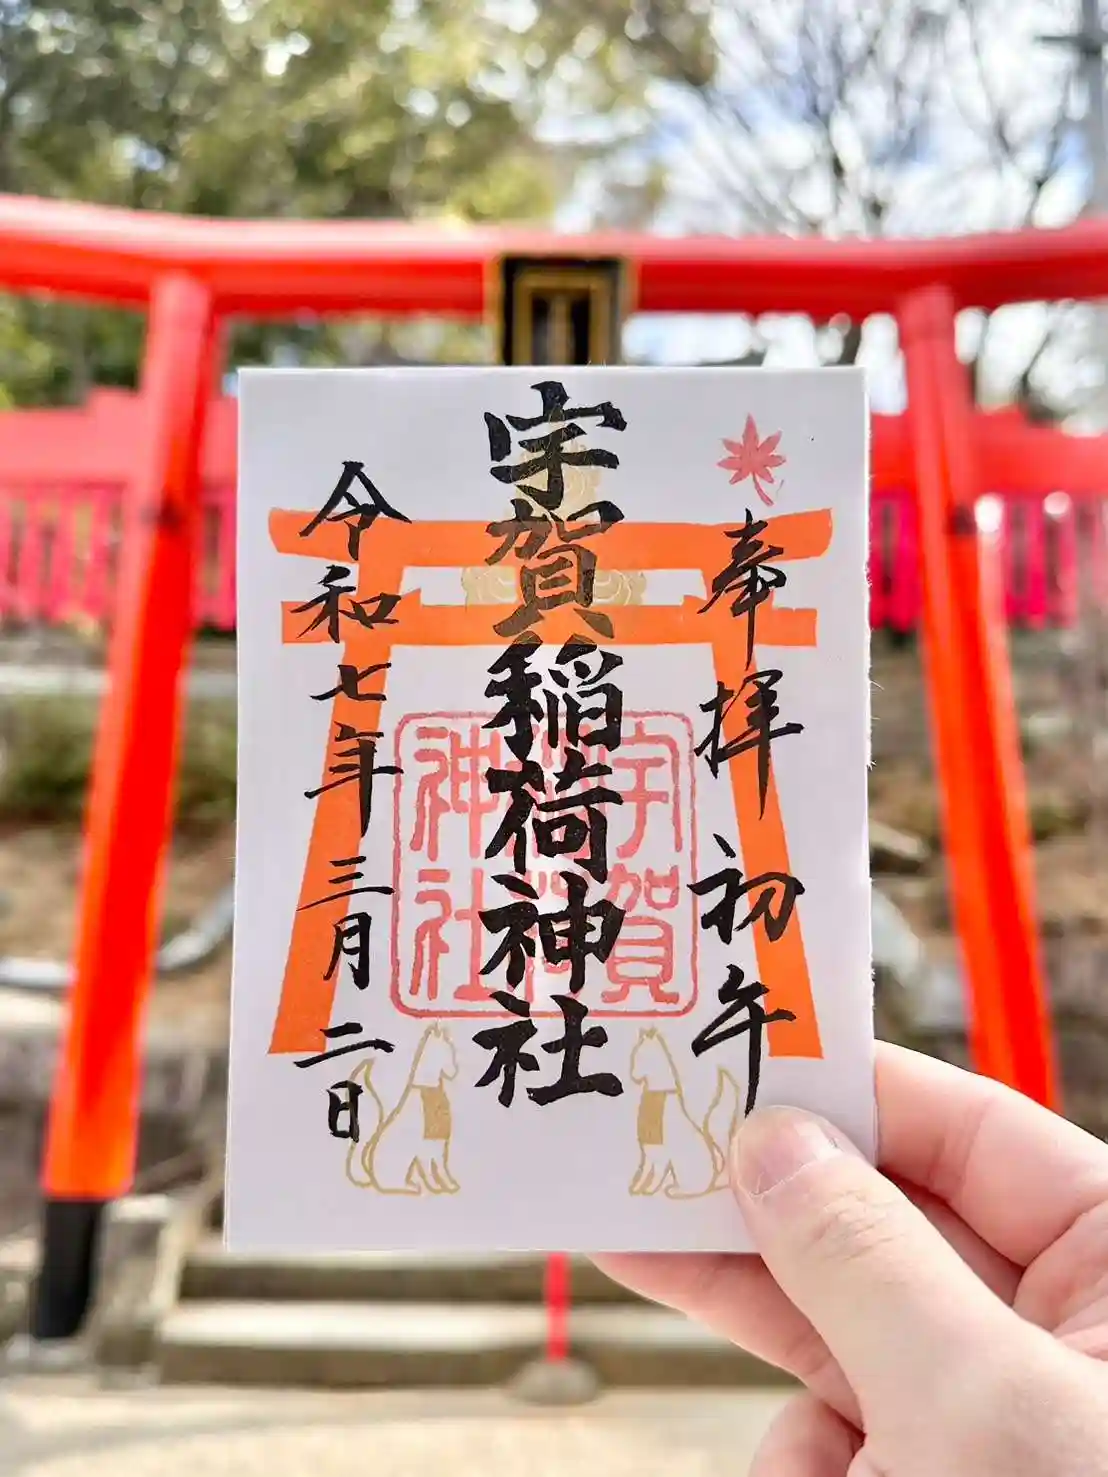 奉拝 初午
宇賀稲荷神社
宇賀
稲荷
神社
令和七年 三月 二日